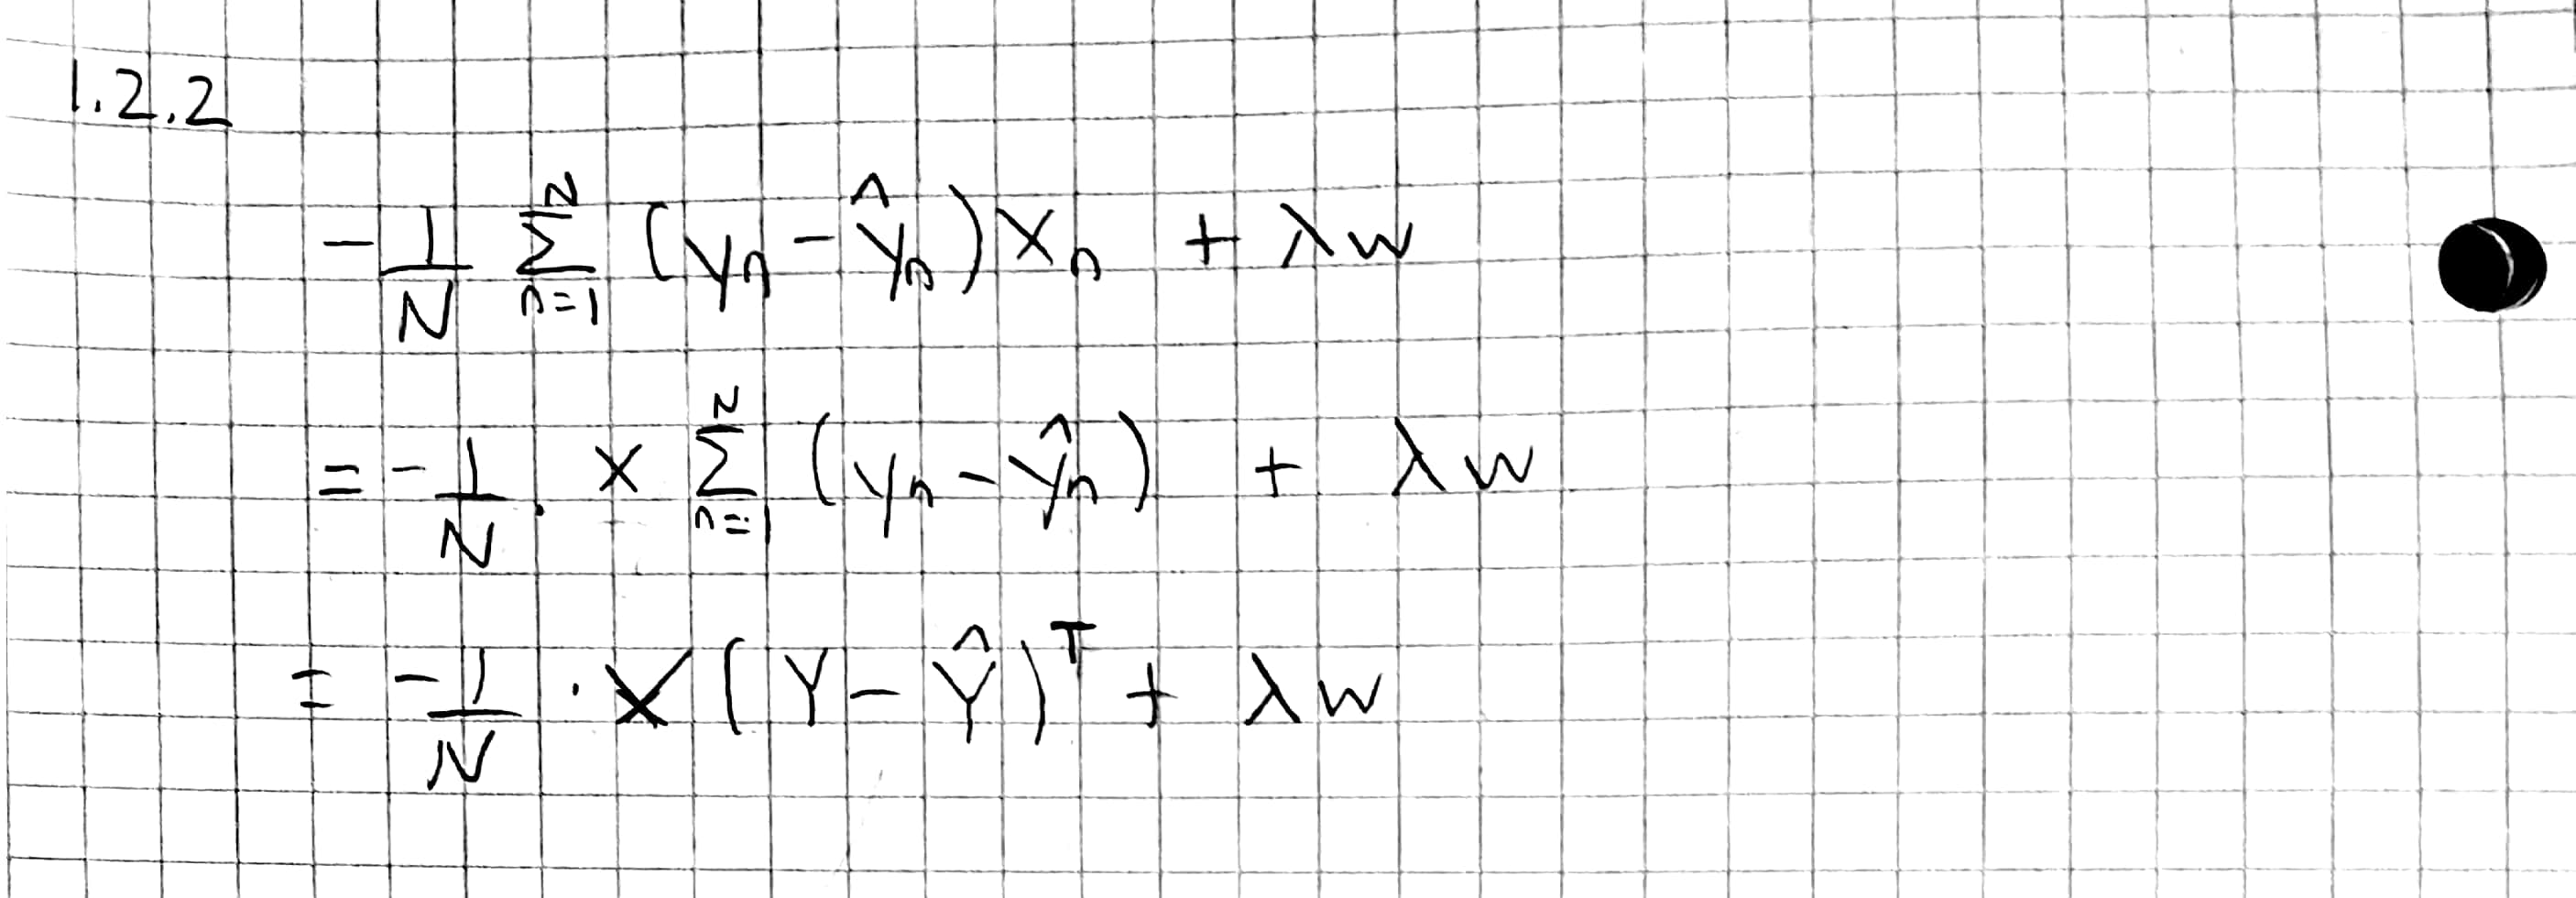 1.2.2
- 1/N Σ_{n=1}^{N} (y_n - ŷ_n) x_n + λw
= - 1/N · x Σ_{n=1}^{N} (y_n - ŷ_n) + λw
= - 1/N · X (Y - Ŷ)^T + λw